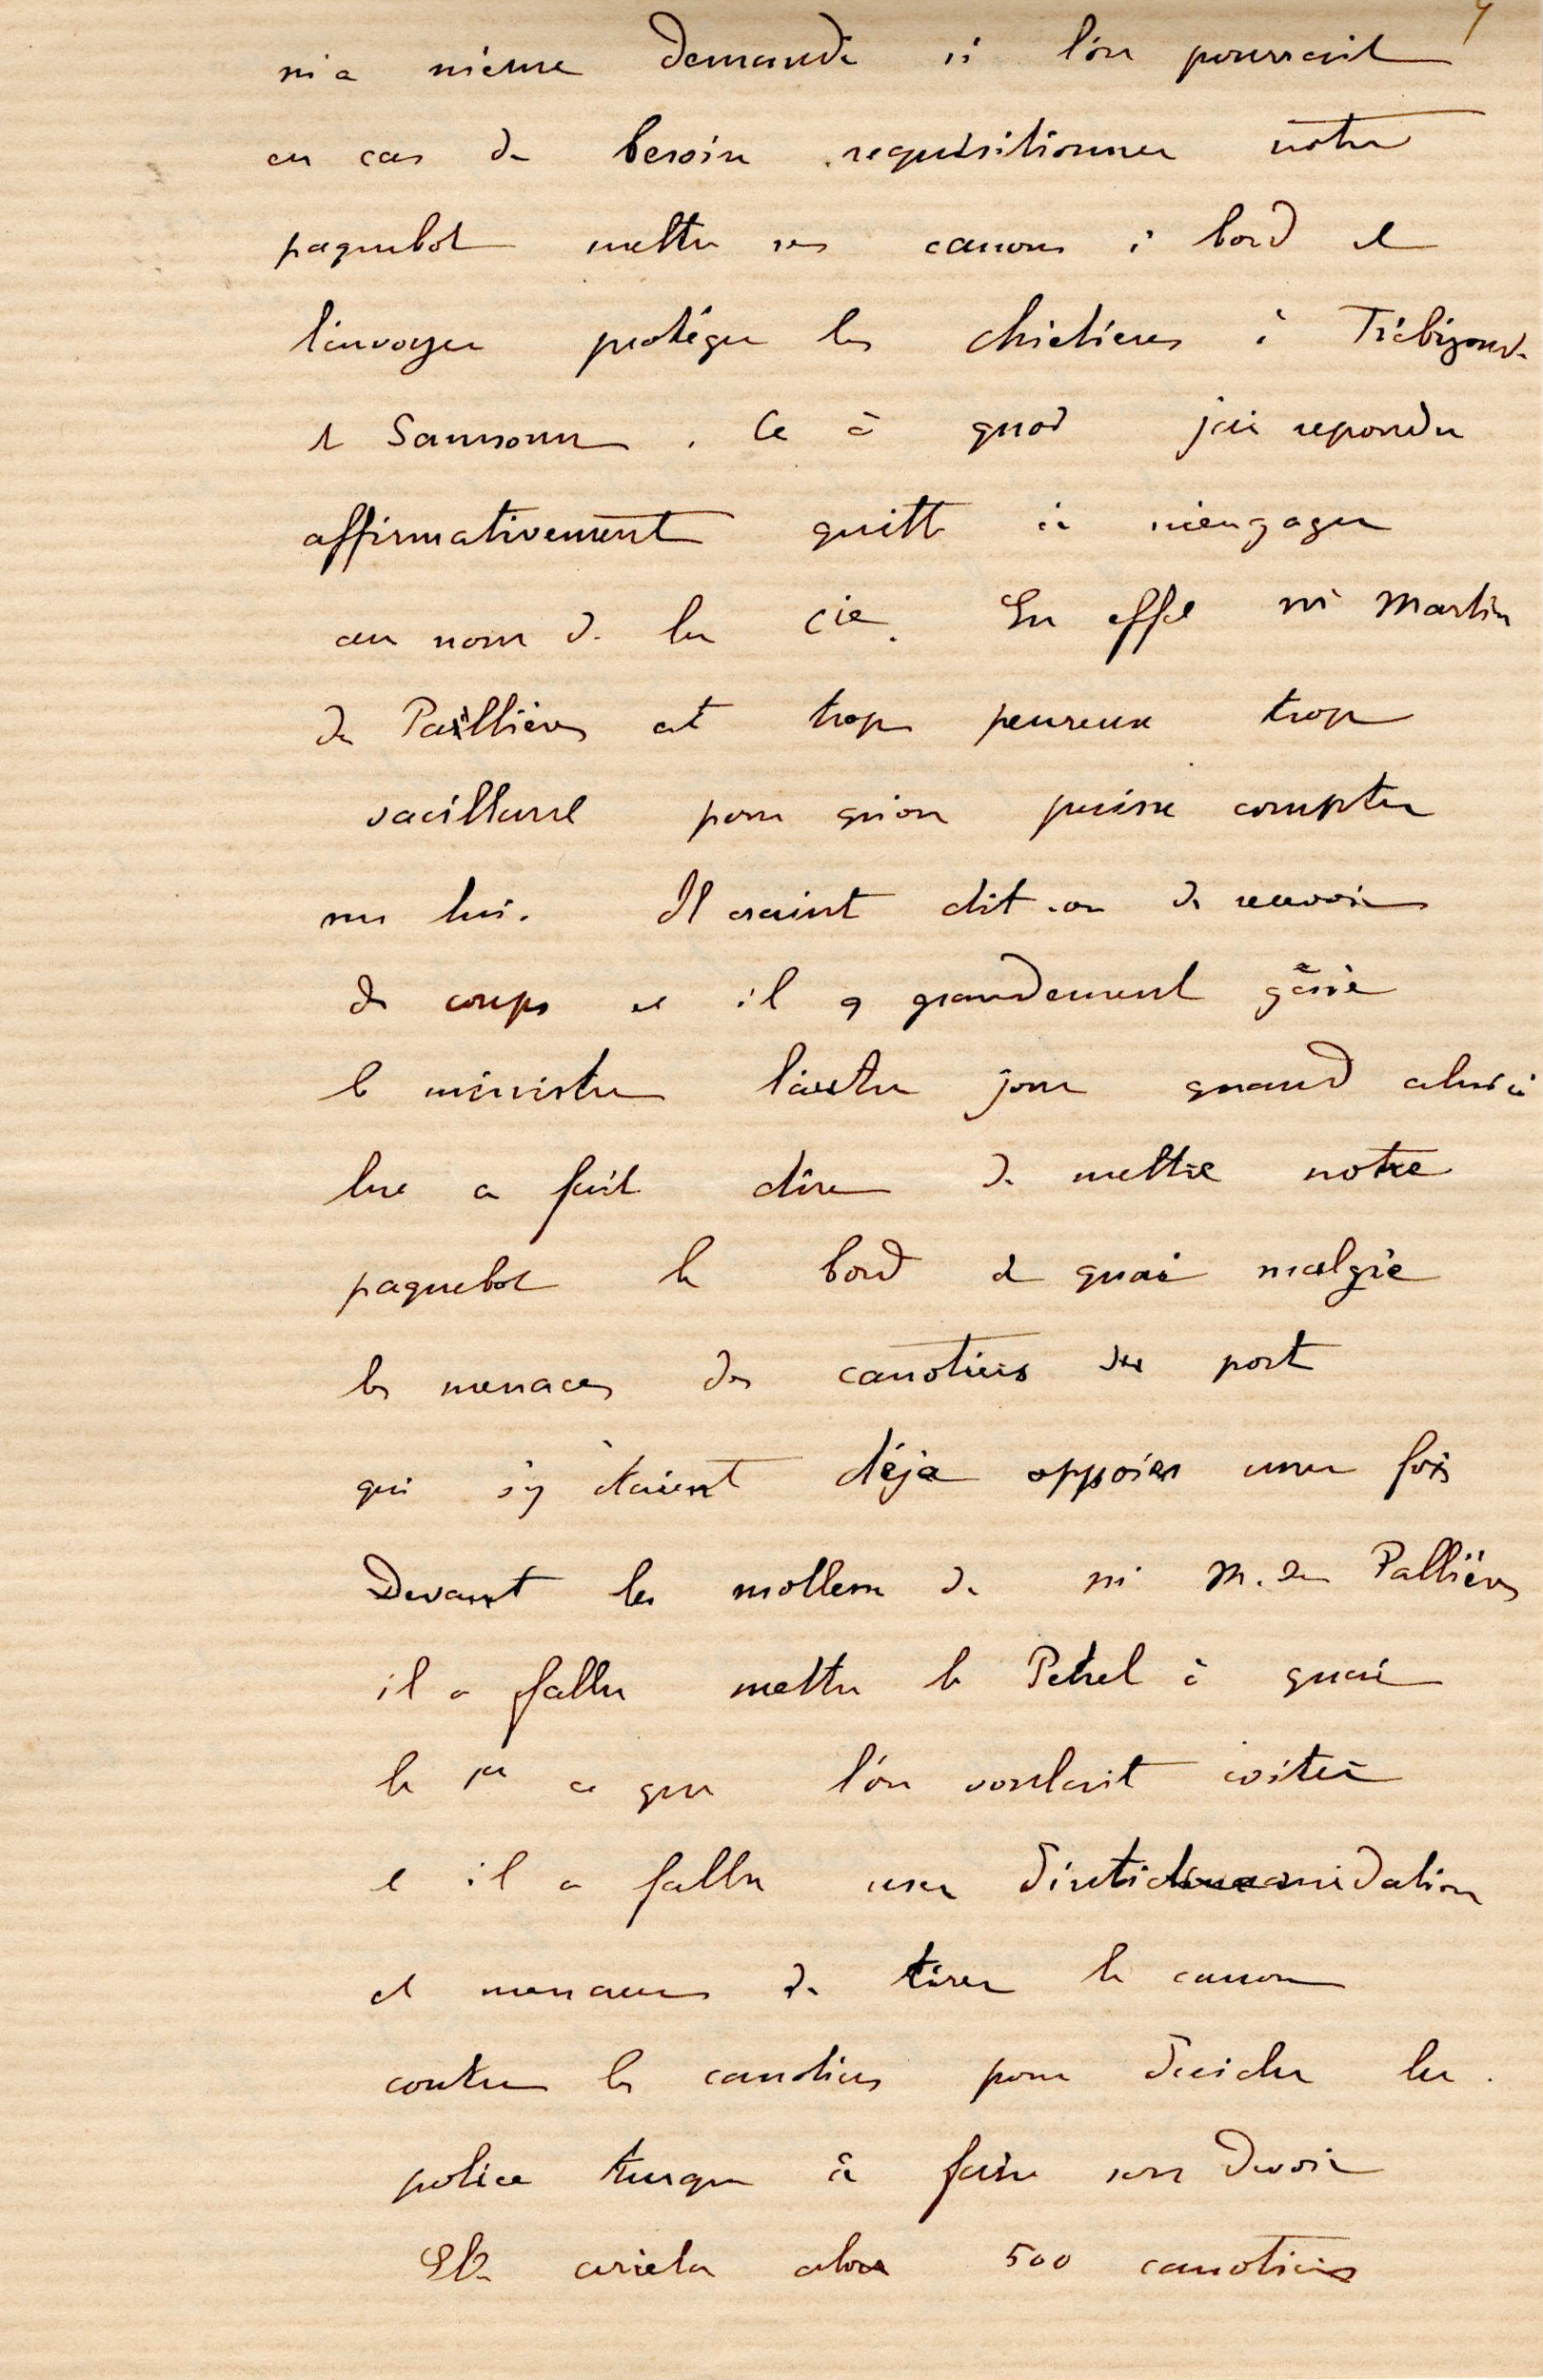 m'a même demandé si l'on pourrait
en cas de besoin requisitionner notre
paquebot mettre ses canons à bord et
l'envoyer protéger les chrétiens à Trébizonde
et Samsoun. Ce à quoi j'ai repondu
affirmativement quitte à m'engager
au nom de la Cie. En effet mr Martin
de Pallières est trop peureux trop
vacillant pour qu'on puisse compter
sur lui. Il craint dit-on de recevoir
des coups et il a grandement gêné
le ministre l'autre jour quand celui ci
lui a fait dire de mettre notre
paquebot le bord à quai malgré
les menaces des canotiers du port
qui s'y étaient déja opposés une fois
Devant la mollesse de mr M. de Pallières
il a fallu mettre le Petrel à quai
le 1er ce que l'on voulait éviter
et il a fallu user d'intimidation
et menacer de tirer le canon
contre les canotiers pour decider la
police turque à faire son devoir
Elle arrêta alors 500 canotiers